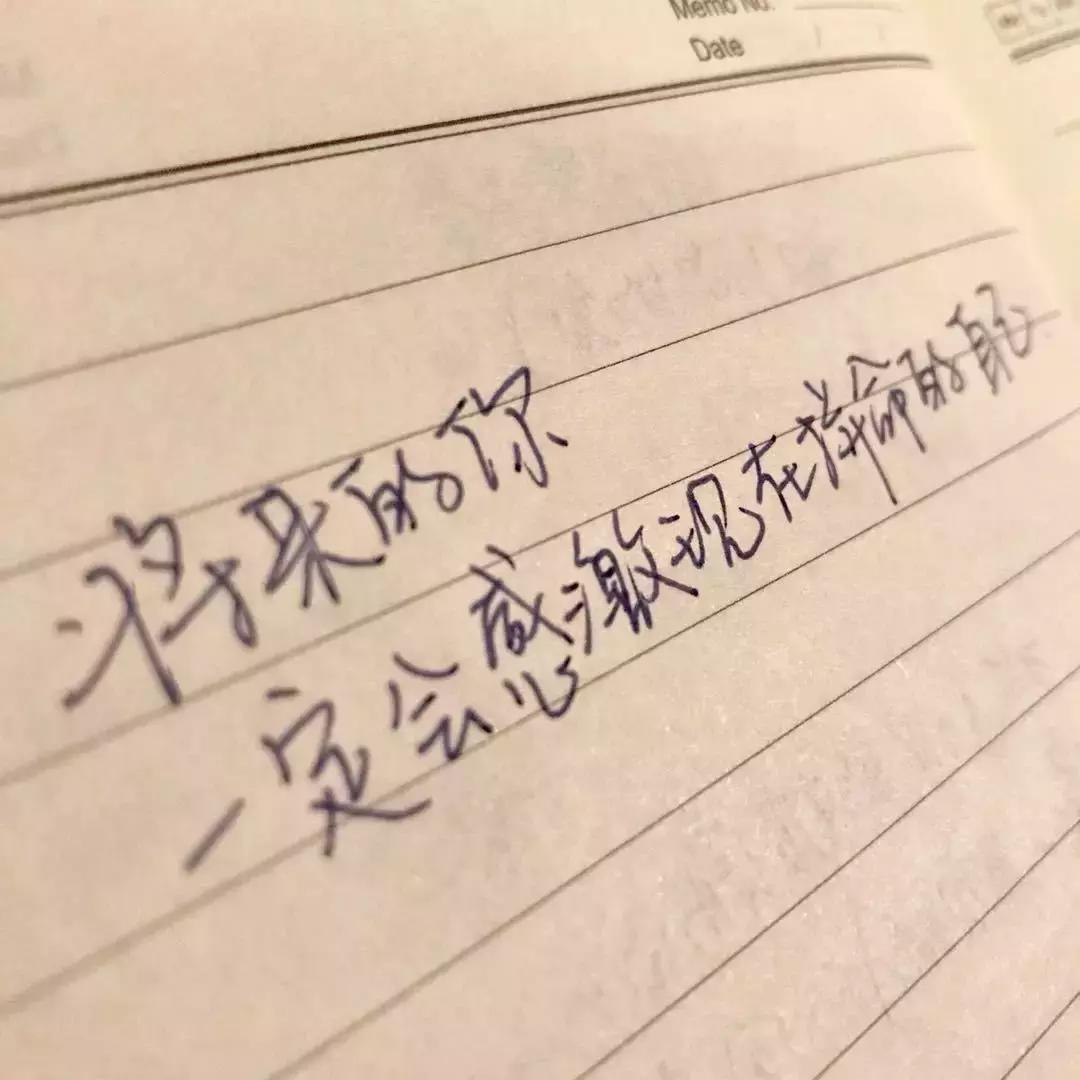 Memo No.
Date
将来的你
一定会感激现在拼命的自己